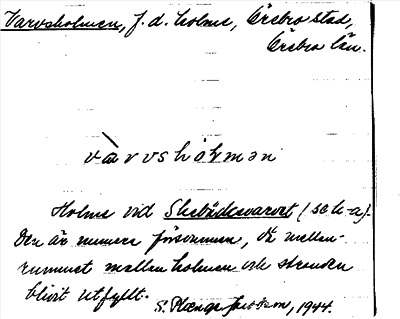 Varvsholmen, f. d. holme, Örebro stad,
Örebro län.
vàrvshòlmən
Holme vid Skebäcksvarvet (se k-a).
Den är numera försvunnen, då mellan-
rummet mellan holmen och stranden
blivit utfyllt.
S. 1944.